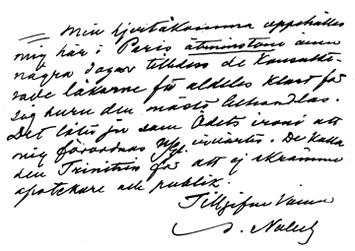 = Min hjertåkomma uppehålles
mig här i Paris åtminstone ännu
några dagar tilldess de konsulte-
rade läkarne få aldeles klart för
sig huru den måste behandlas.
Det låter ju som Ödets ironi att
mig förordnas Ngl. invärtes. De kalla
den Trinitrin för att ej skrämma
apotekare och publik.
Tillgifne Vännen
A. Nobel